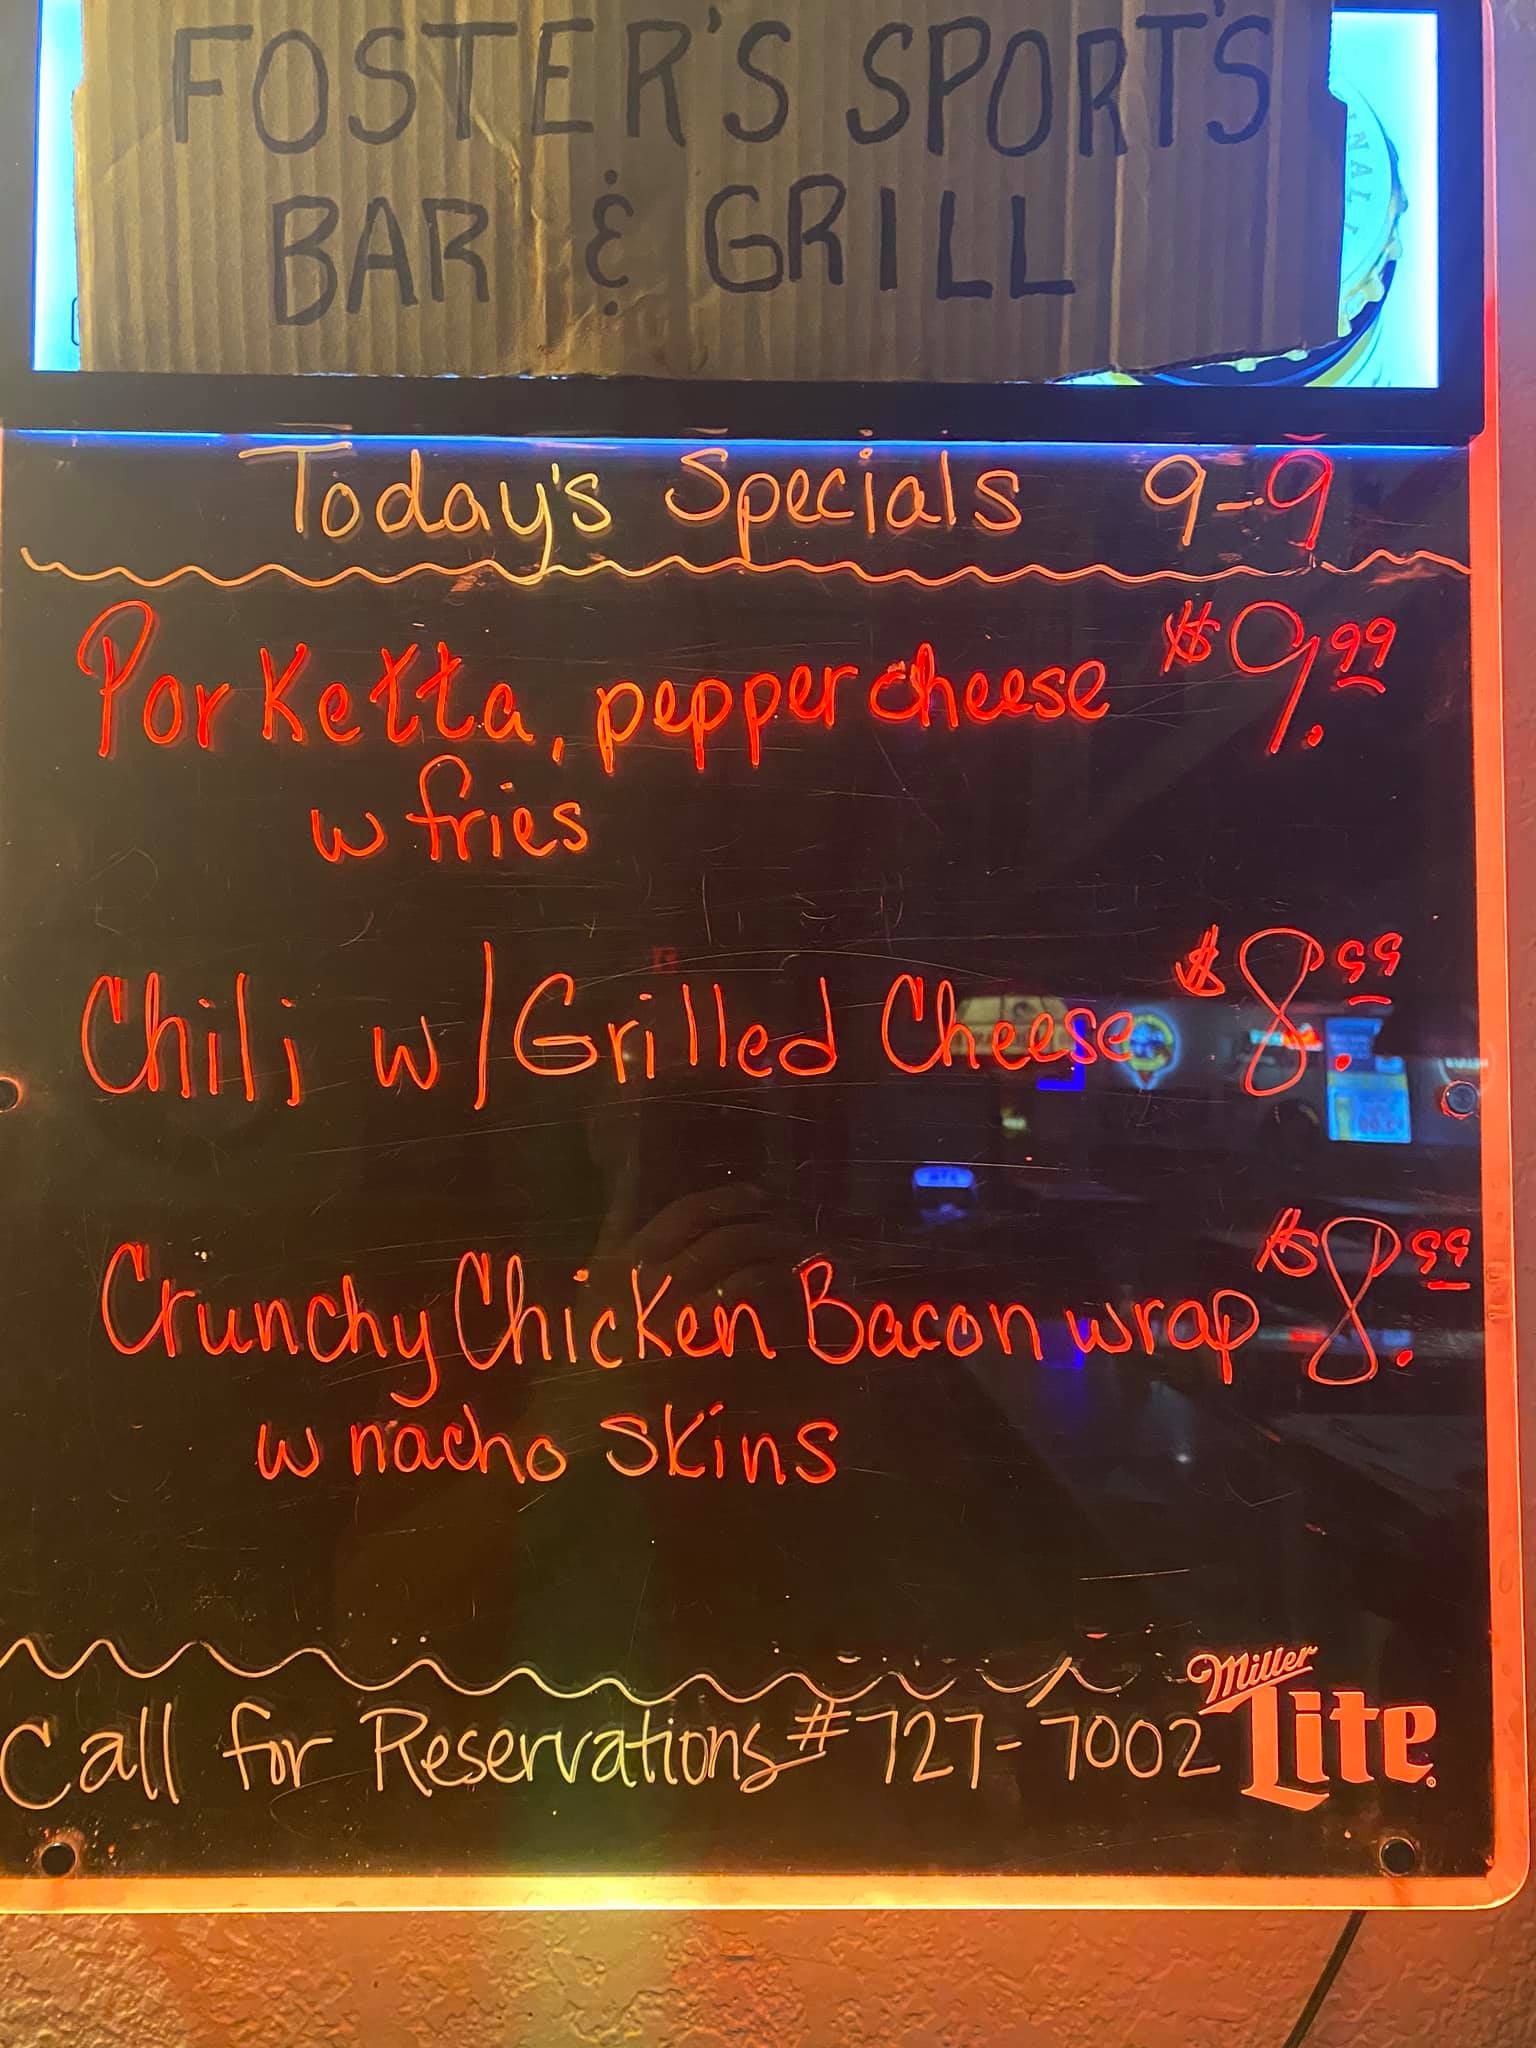 FOSTER'S SPORT'S
BAR & GRILL
Today's Specials 9-9
Porketta, pepper cheese $9.99
w fries
Chili w/Grilled Cheese $8.99
Crunchy Chicken Bacon wrap $8.99
w nacho skins
Call for Reservations # 727-7002
Miller
Lite